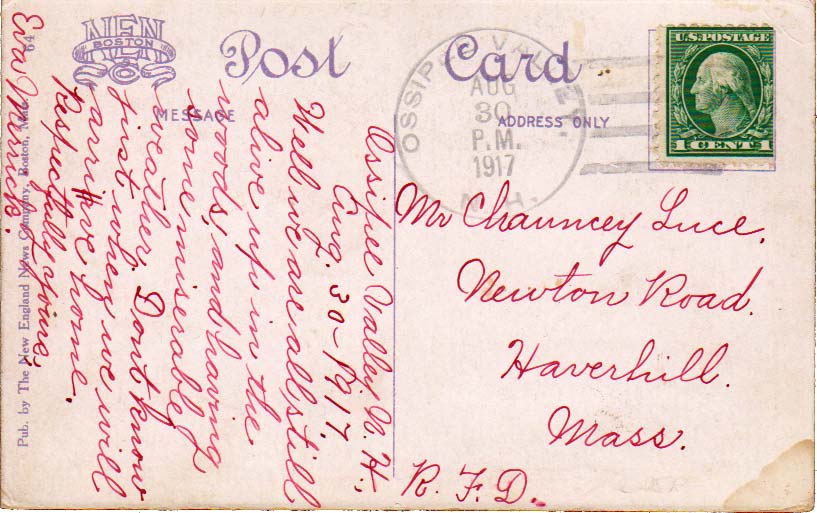 NEN
BOSTON
Post Card
MESSAGE
ADDRESS ONLY
OSSIPEE VALLEY
AUG
30
P.M.
1917
N.H.
U.S. POSTAGE
1 CENT 1
Ossipee Valley N. H.
Aug. 30 - 1917.
Well we are all still
alive up in the
woods, and having
some miserable
weather. Dont know
just when we will
arrive home.
Respectfully yours,
Eva Merrick.
Mr Chauncey Luce,
Newton Road.
Haverhill.
Mass.
R. F. D.
Pub. by The New England News Company, Boston, Mass.
64